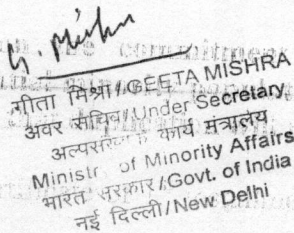 G. Mishra
गीता मिश्रा/GEETA MISHRA
अवर सचिव/Under Secretary
कार्य मंत्रालय
of Minority Affairs
भारत सरकार/Govt. of India
नई दिल्ली/New Delhi